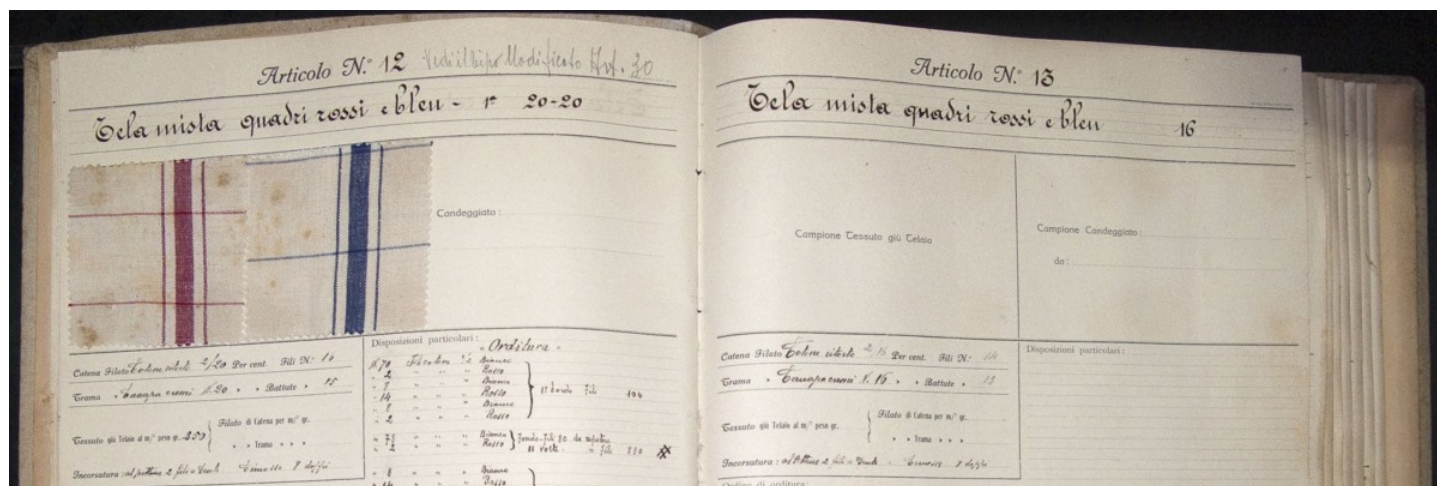 Articolo N.° 12 Vedi il tipo Modificato Art. 30
Tela mista quadri rossi e bleu - 1ª 20-20
Candeggiato :
Catena Filato 2/20 Per cent. Fili N.° 16
Trama " N. 20 " " Battute " 15
Tessuto giù Telaio al m/² peso gr. 250
Filato di Catena per m/² gr.
" " Trama " " "
Incorsatura : al pettine 2 fili a
Disposizioni particolari :
" Orditura "
N. 70 Bianco
" 2 " " " Rosso
" 8 " " " Bianco
" 14 " " " Rosso
" 8 " " " Bianco
" 2 " " " Rosso
1° bordo fili 104
" 78 " " " Bianco
" 2 " " " Rosso
Fondo fili 80 da ripetere
11 volte " fili 880
" 8 " " " Bianco
" 14 " " " Rosso
Articolo N.° 13
Tela mista quadri rossi e bleu 16
Campione Tessuto giù Telaio
Campione Candeggiato :
da :
Catena Filato 2/16 Per cent. Fili N.° 14
Trama " N. 16 " " Battute " 13
Tessuto giù Telaio al m/² peso gr.
Filato di Catena per m/² gr.
" " Trama " " "
Incorsatura : al pettine 2 fili a
Disposizioni particolari :
Ordine di orditura :